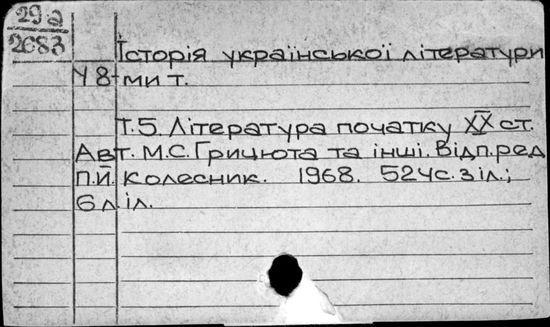 29а
2683
Історія української літератури
У 8-ми т.
Т.5. Література початку XX ст.
Авт. М.С.Грицюта та інші. Відп.ред
П.Й. Колесник. 1968. 524с. з іл.;
6 л. іл.